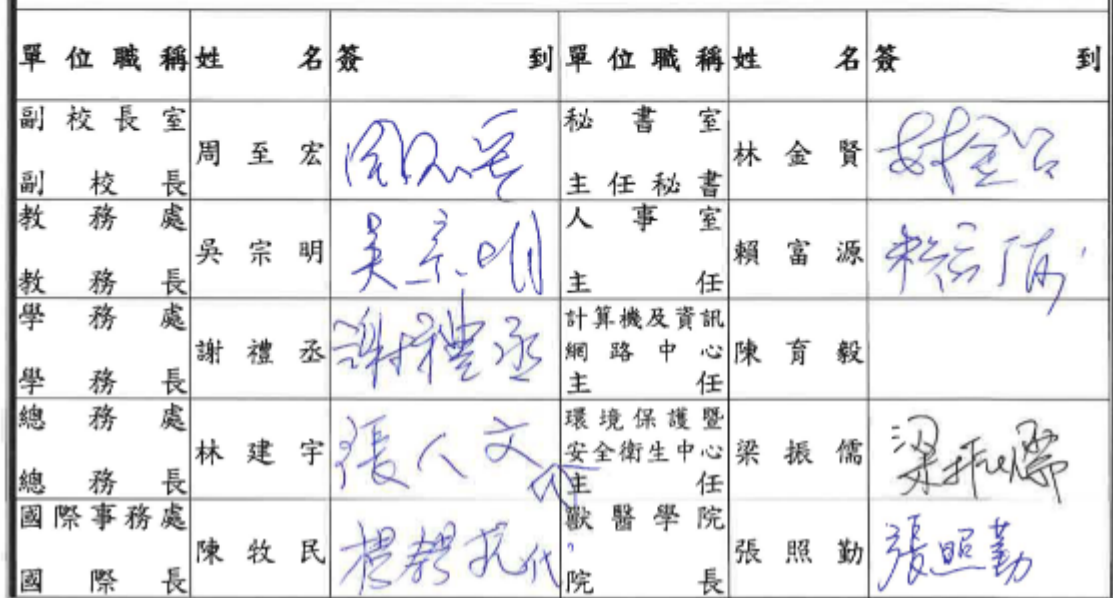 單位職稱 姓名 簽到 單位職稱 姓名 簽到
副校長室 副校長 周至宏 周至宏 秘書室 主任秘書 林金賢 林金賢
教務處 教務長 吳宗明 吳宗明 人事室 主任 賴富源 賴富源
學務處 學務長 謝禮丞 謝禮丞 計算機及資訊網路中心 主任 陳育毅
總務處 總務長 林建宇 張人文代 環境保護暨安全衛生中心 主任 梁振儒 梁振儒
國際事務處 國際長 陳牧民 代 獸醫學院 院長 張照勤 張照勤